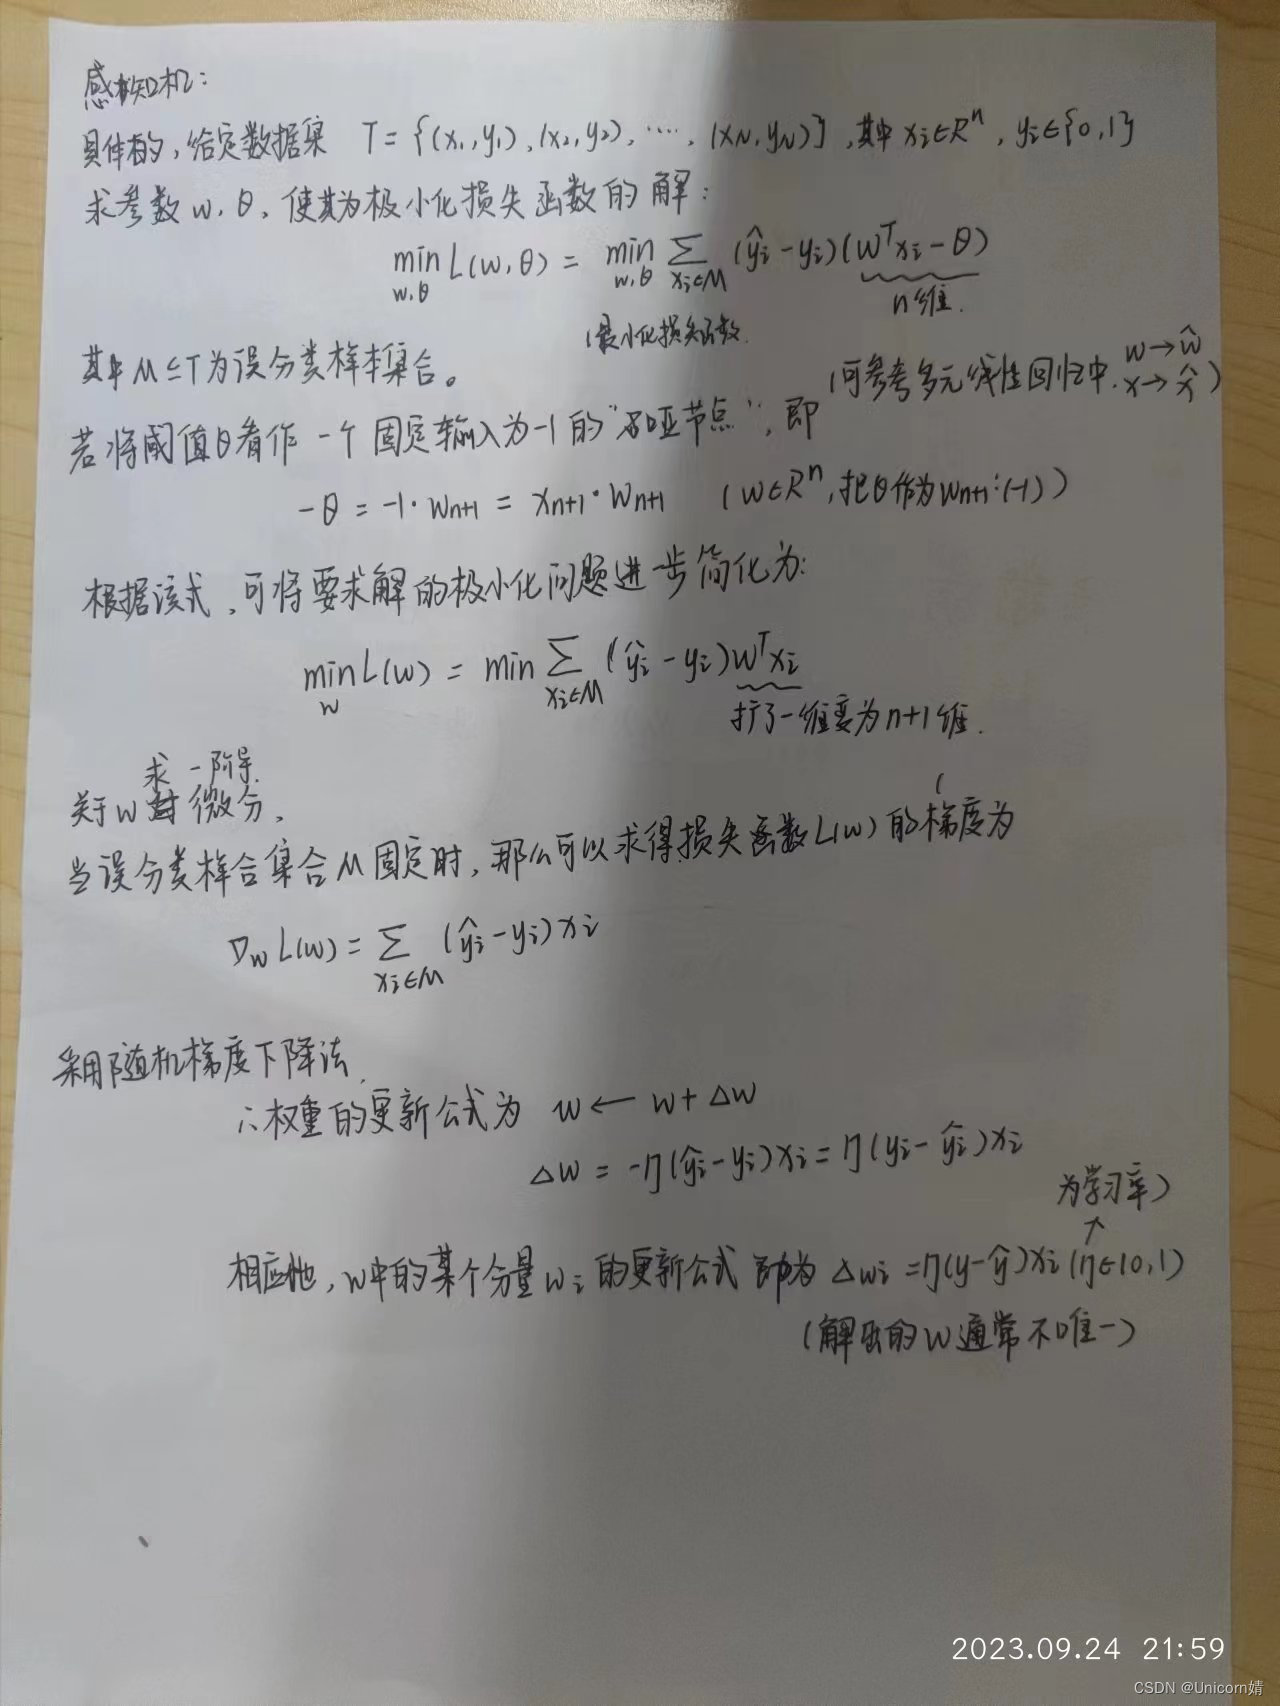 感知机:
具体的,给定数据集 T = {(x₁,y₁),(x₂,y₂),⋯⋯,(x_N,y_N)},其中 xᵢ∈Rⁿ,yᵢ∈{0,1}
求参数 w,θ,使其为极小化损失函数的解:
min_{w,θ} L(w,θ) = min_{w,θ} Σ_{xᵢ∈M} (ŷᵢ-yᵢ)(wᵀxᵢ-θ)
n维.
(最小化损失函数.
其中 M⊆T 为误分类样本集合。
(可参考多元线性回归中. w→ŵ x→x̂)
若将阈值θ看作一个固定输入为-1的"哑节点",即
-θ = -1·w_{n+1} = x_{n+1}·w_{n+1} (w∈Rⁿ,把θ作为w_{n+1}:(-1))
根据该式,可将要求解的极小化问题进一步简化为:
min_w L(w) = min Σ_{xᵢ∈M} (ŷᵢ-yᵢ)wᵀxᵢ
扩了一维变为n+1维.
求一阶导.
关于w 微分,
当误分类样合集合M固定时,那么可以求得损失函数L(w)的梯度为
∇_w L(w) = Σ_{xᵢ∈M} (ŷᵢ-yᵢ)xᵢ
采用随机梯度下降法,
∴权重的更新公式为 w ← w+△w
△w = -η(ŷᵢ-yᵢ)xᵢ = η(yᵢ-ŷᵢ)xᵢ
为学习率)
↑
相应地,w中的某个分量wᵢ的更新公式即为 △wᵢ = η(y-ŷ)xᵢ (η∈(0,1)
(解出的w通常不唯一)
2023.09.24 21:59
CSDN @Unicorn婧